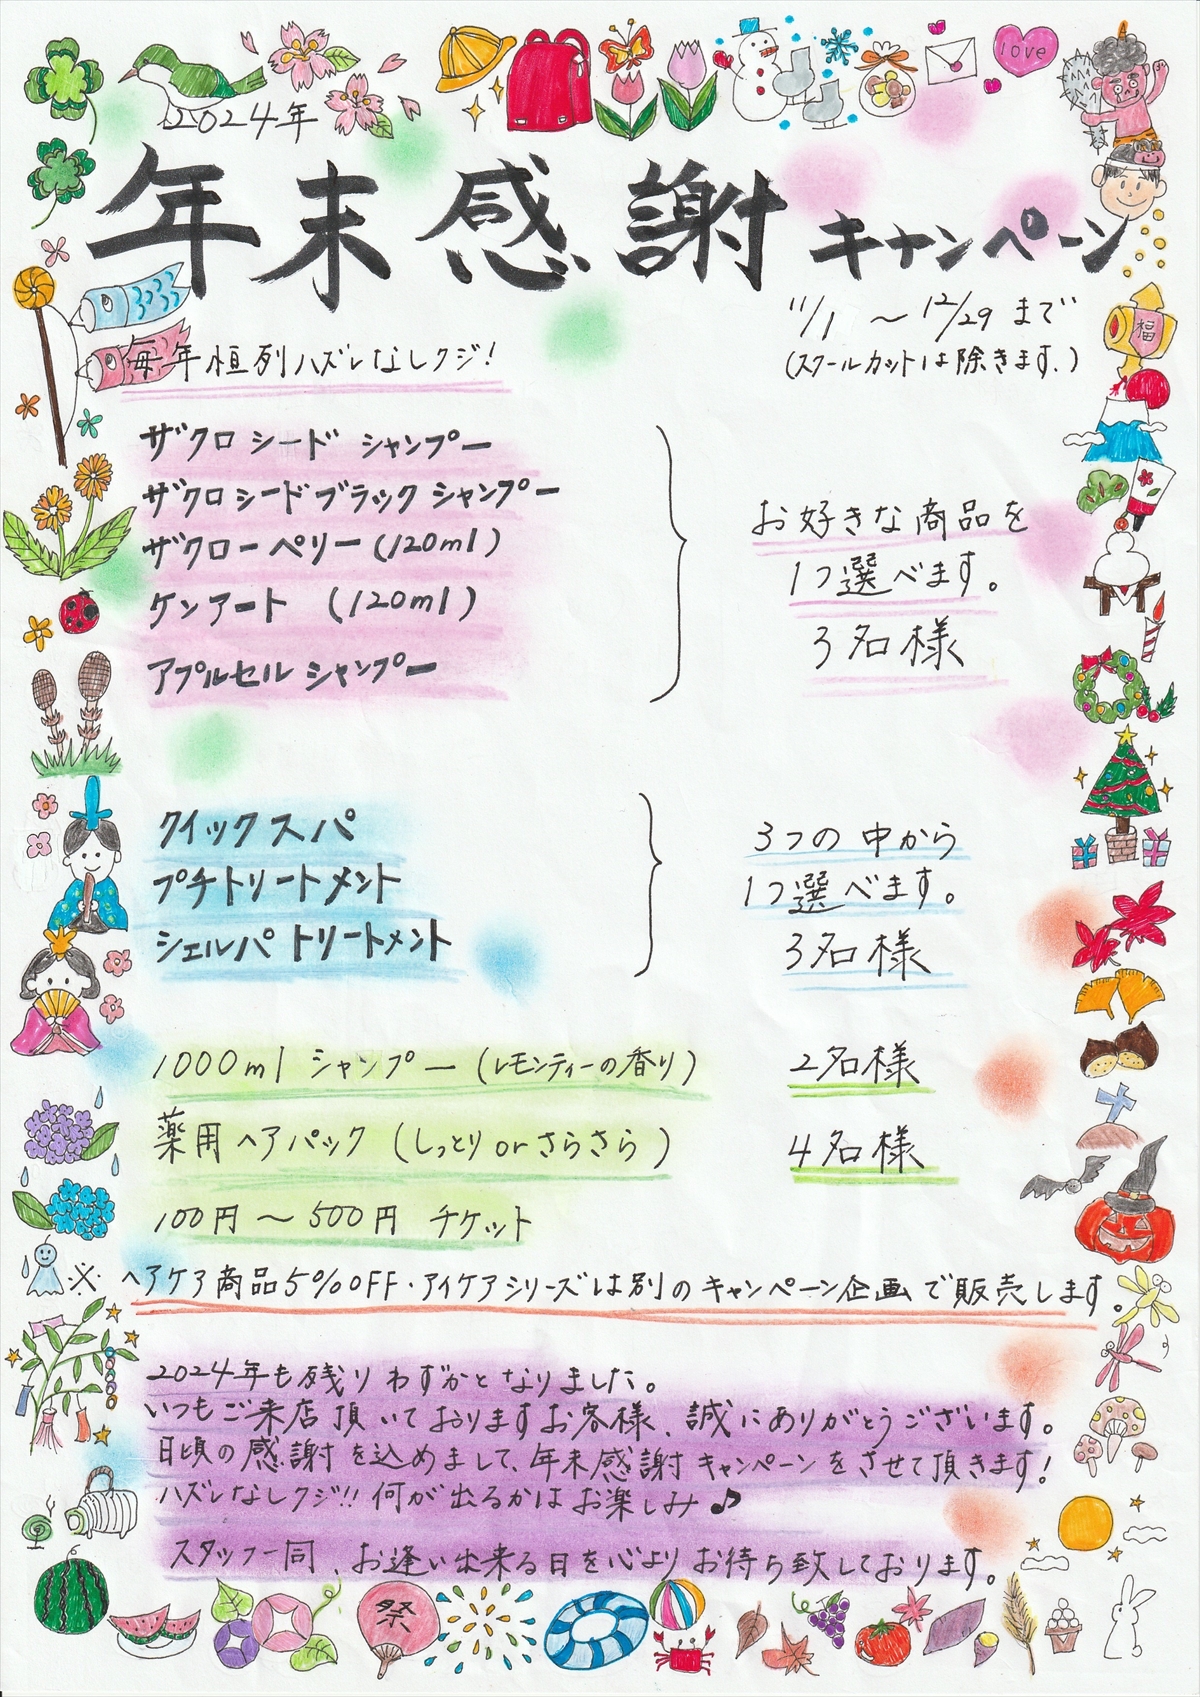 love
2024年
年末感謝キャンペーン
11/1 ～ 12/29 まで
(スクールカットは除きます。)
福
毎年恒列ハズレなしクジ!
ザクロ シード シャンプー
ザクロシードブラック シャンプー
ザクローペリー(120ml)
ケンアート (120ml)
アプルセル シャンプー
お好きな商品を
1つ選べます。
3名様
クイックスパ
プチトリートメント
シェルパ トリートメント
3つの中から
1つ選べます。
3名様
1000ml シャンプー (レモンティーの香り) 2名様
薬用ヘアパック (しっとり or さらさら) 4名様
100円～500円 チケット
※ヘアケア商品5%OFF・アイケアシリーズは別のキャンペーン企画で販売します。
2024年も残りわずかとなりました。
いつもご来店頂いておりますお客様、誠にありがとうございます。
日頃の感謝を込めまして、年末感謝キャンペーンをさせて頂きます!
ハズレなしクジ!! 何が出るかはお楽しみ♪
スタッフ一同、お逢い出来る日を心よりお待ち致しております。
祭